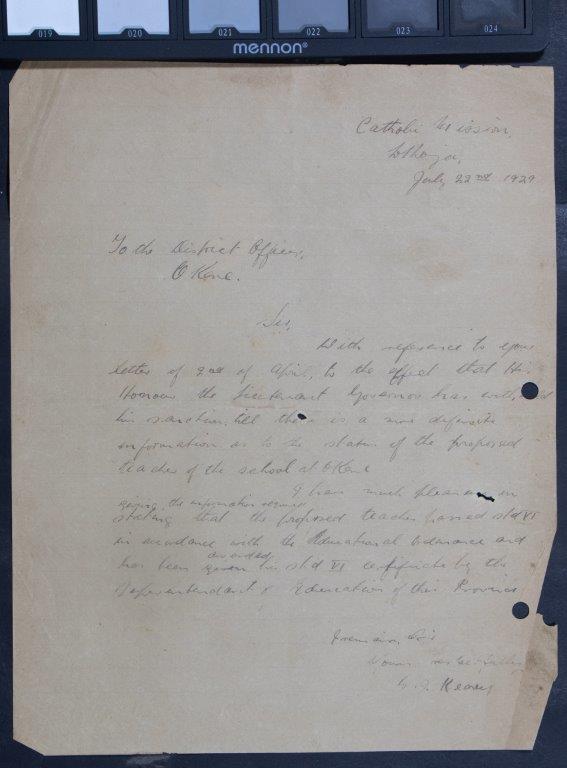 019 020 021 022 023 024
mennon®
Catholic Mission,
July 22nd 1929
To the District Officer,
OKene.
Sir,
With reference to your
letter of 2nd of April, to the effect that His
Honour the Lieutenant Governor has
his sanction till there is a more definite
information as to the status of the proposed
teacher of the school at OKene
I have much pleasure in
giving the information required
stating that the proposed teacher passed std VI
in accordance with the Educational Ordinance and
awarded
has been given his std VI certificate by the
Superintendant of Education of this Province
I remain, Sir
Yours respectfully